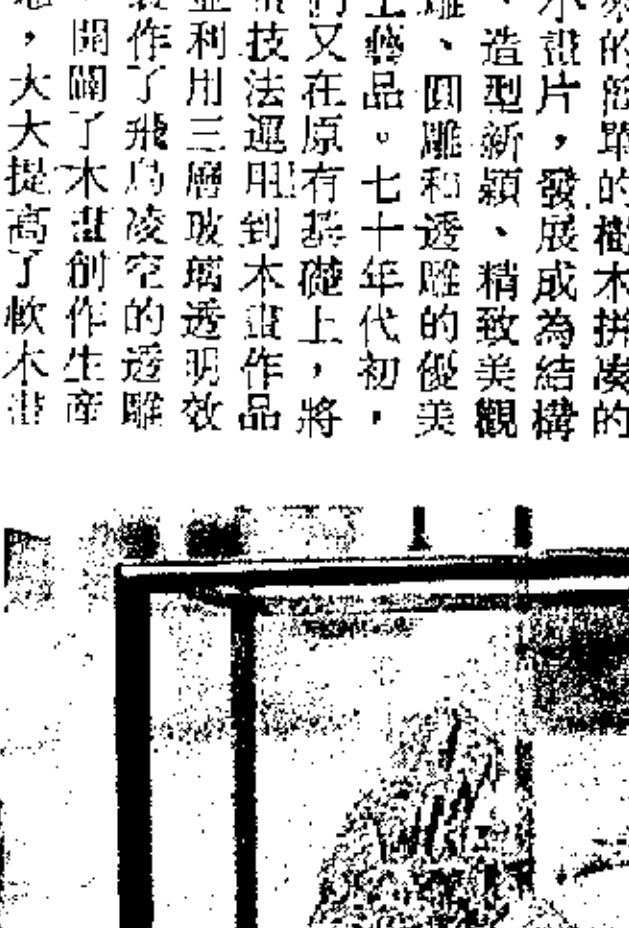 的簡單的樹木拼湊的
木畫片，發展成為結構
、造型新穎、精致美觀
雕、圓雕和透雕的優美
工藝品。七十年代初，
們又在原有基礎上，將
技法運用到木畫作品
並利用三層玻璃透明效
製作了飛鳥凌空的透雕
，開闢了木畫創作生產
，大大提高了軟木畫